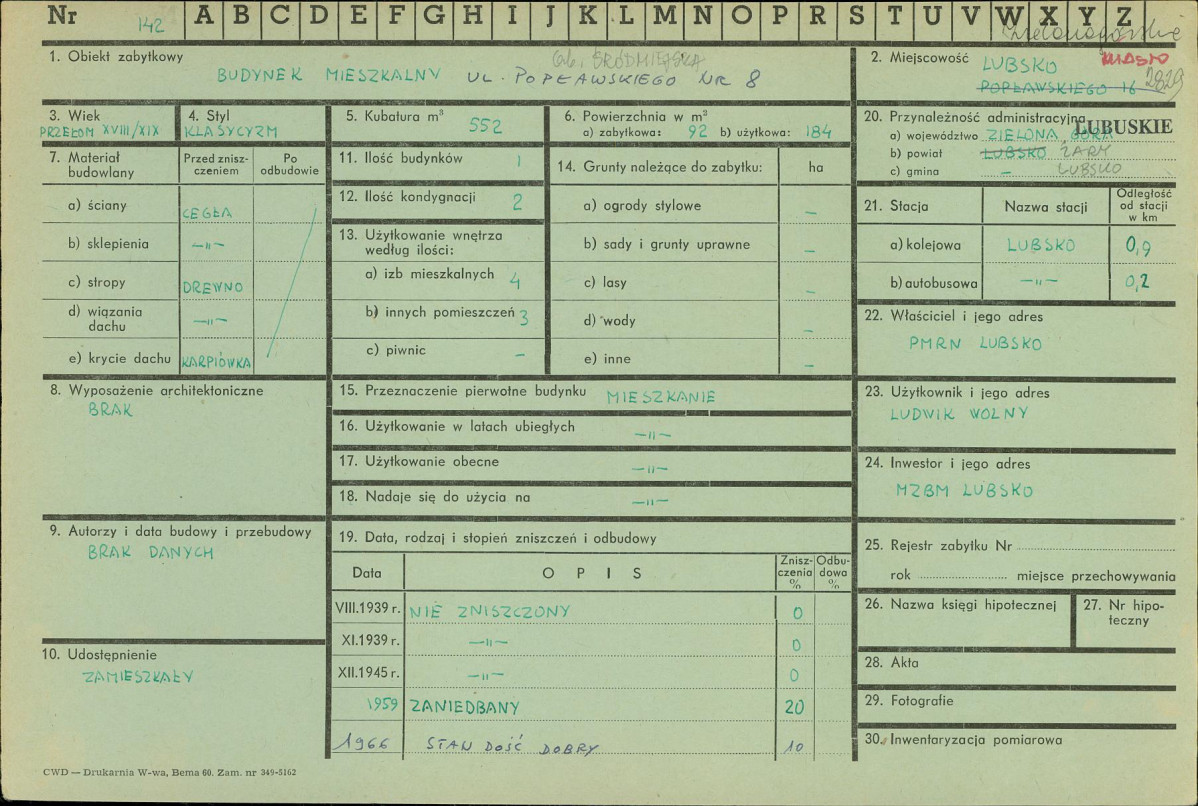 Nr 142 A B C D E F G H I J K L M N O P R S T U V W X Y Z
zielonogórskie
1. Obiekt zabytkowy
ob. ŚRÓDMIEJSKA
BUDYNEK MIESZKALNY UL. POPŁAWSKIEGO NR 8
2. Miejscowość LUBSKO MIASTO
POPŁAWSKIEGO 16 2829
3. Wiek
PRZEŁOM XVIII/XIX
4. Styl
KLASYCYZM
5. Kubatura m³ 552
6. Powierzchnia w m²
a) zabytkowa: 92 b) użytkowa: 184
20. Przynależność administracyjna
LUBUSKIE
a) województwo ZIELONA GÓRA
b) powiat LUBSKO ŻARY
c) gmina – LUBSKO
7. Materiał budowlany
Przed zniszczeniem
Po odbudowie
a) ściany CEGŁA
b) sklepienia —"—
c) stropy DREWNO
d) wiązania dachu —"—
e) krycie dachu KARPIÓWKA
11. Ilość budynków 1
12. Ilość kondygnacji 2
13. Użytkowanie wnętrza według ilości:
a) izb mieszkalnych 4
b) innych pomieszczeń 3
c) piwnic –
14. Grunty należące do zabytku: ha
a) ogrody stylowe –
b) sady i grunty uprawne –
c) lasy –
d) wody –
e) inne –
21. Stacja
Nazwa stacji
Odległość od stacji w km
a) kolejowa LUBSKO 0,9
b) autobusowa —"— 0,2
22. Właściciel i jego adres
PMRN LUBSKO
8. Wyposażenie architektoniczne
BRAK
15. Przeznaczenie pierwotne budynku MIESZKANIE
16. Użytkowanie w latach ubiegłych —"—
17. Użytkowanie obecne —"—
18. Nadaje się do użycia na —"—
23. Użytkownik i jego adres
LUDWIK WOLNY
24. Inwestor i jego adres
MZBM LUBSKO
9. Autorzy i data budowy i przebudowy
BRAK DANYCH
19. Data, rodzaj i stopień zniszczeń i odbudowy
Data OPIS Zniszczenia % Odbudowa %
VIII.1939 r. NIE ZNISZCZONY 0
XI.1939 r. —"— 0
XII.1945 r. —"— 0
1959 ZANIEDBANY 20
1966 STAN DOŚĆ DOBRY 10
25. Rejestr zabytku Nr
rok miejsce przechowywania
26. Nazwa księgi hipotecznej
27. Nr hipoteczny
10. Udostępnienie
ZAMIESZKAŁY
28. Akta
29. Fotografie
30. Inwentaryzacja pomiarowa
CWD — Drukarnia W-wa, Bema 60. Zam. nr 349-5162